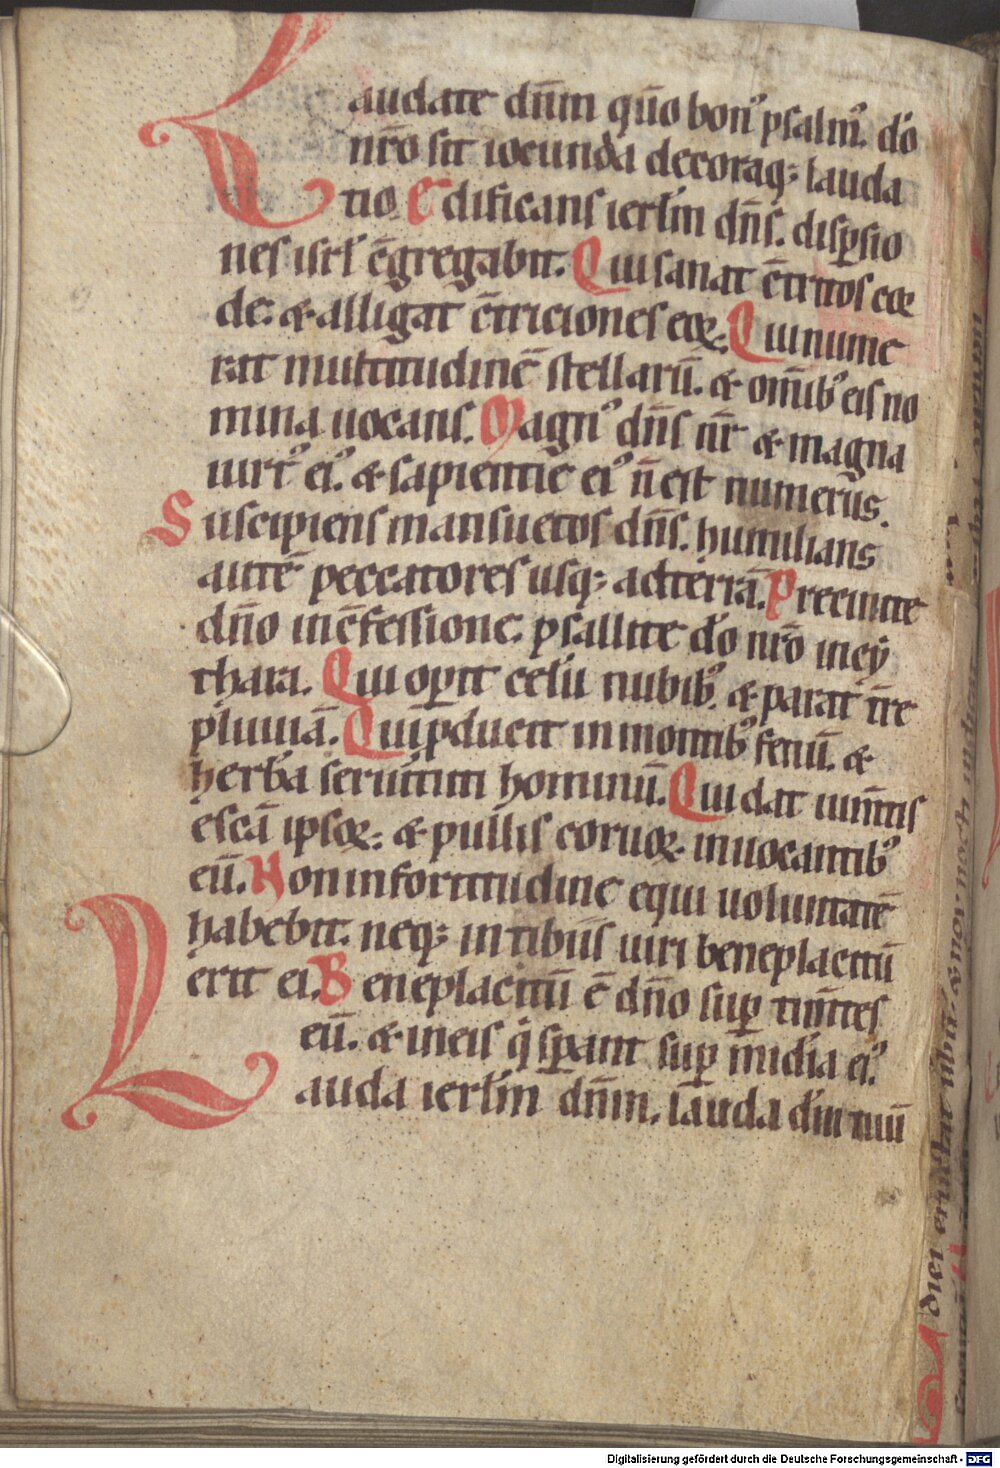 Laudate dn̄m qn̄o bonꝰ psalmꝰ. do
nr̄o sit iocunda decoraq; lauda
tio. Edificans ierl̄m dn̄s. disꝑsio
nes isrl̄ ꝯgregabit. Qui sanat ꝯtritos corꝫ
de: & alligat ꝯtriciones eoꝝ. Qui nume
rat multitudinē stellarū. & omībꝰ eis no
mina uocans. Magnꝰ dn̄s nr̄ & magna
uirtꝰ eiꝰ. & sapientie eiꝰ n̄ est numerus.
Suscipiens mansuetos dn̄s. humilians
autē peccatores usq; ad terrā. Precinite
dn̄o in ꝯfessione. psallite do nr̄o in cẏ
thara. Qui oꝑit celū nubibꝰ. & parat tr̄e
pluuiā. Qui ꝓducit in montibꝰ fenū. &
herbā seruituti hominū. Qui dat iumtis
escā ipsoꝝ: & pullis coruoꝝ inuocantibꝰ
eū. Non in fortitudine equi uoluntatē
habebit. neq; in tibiis uiri beneplacitū
erit ei. Beneplacitū ē dn̄o suꝑ timtes
eū. & in eis q̇ sꝑant suꝑ mīdia eiꝰ.
Lauda ierl̄m dn̄m. lauda dm̄ tuū
Digitalisierung gefördert durch die Deutsche Forschungsgemeinschaft - DFG